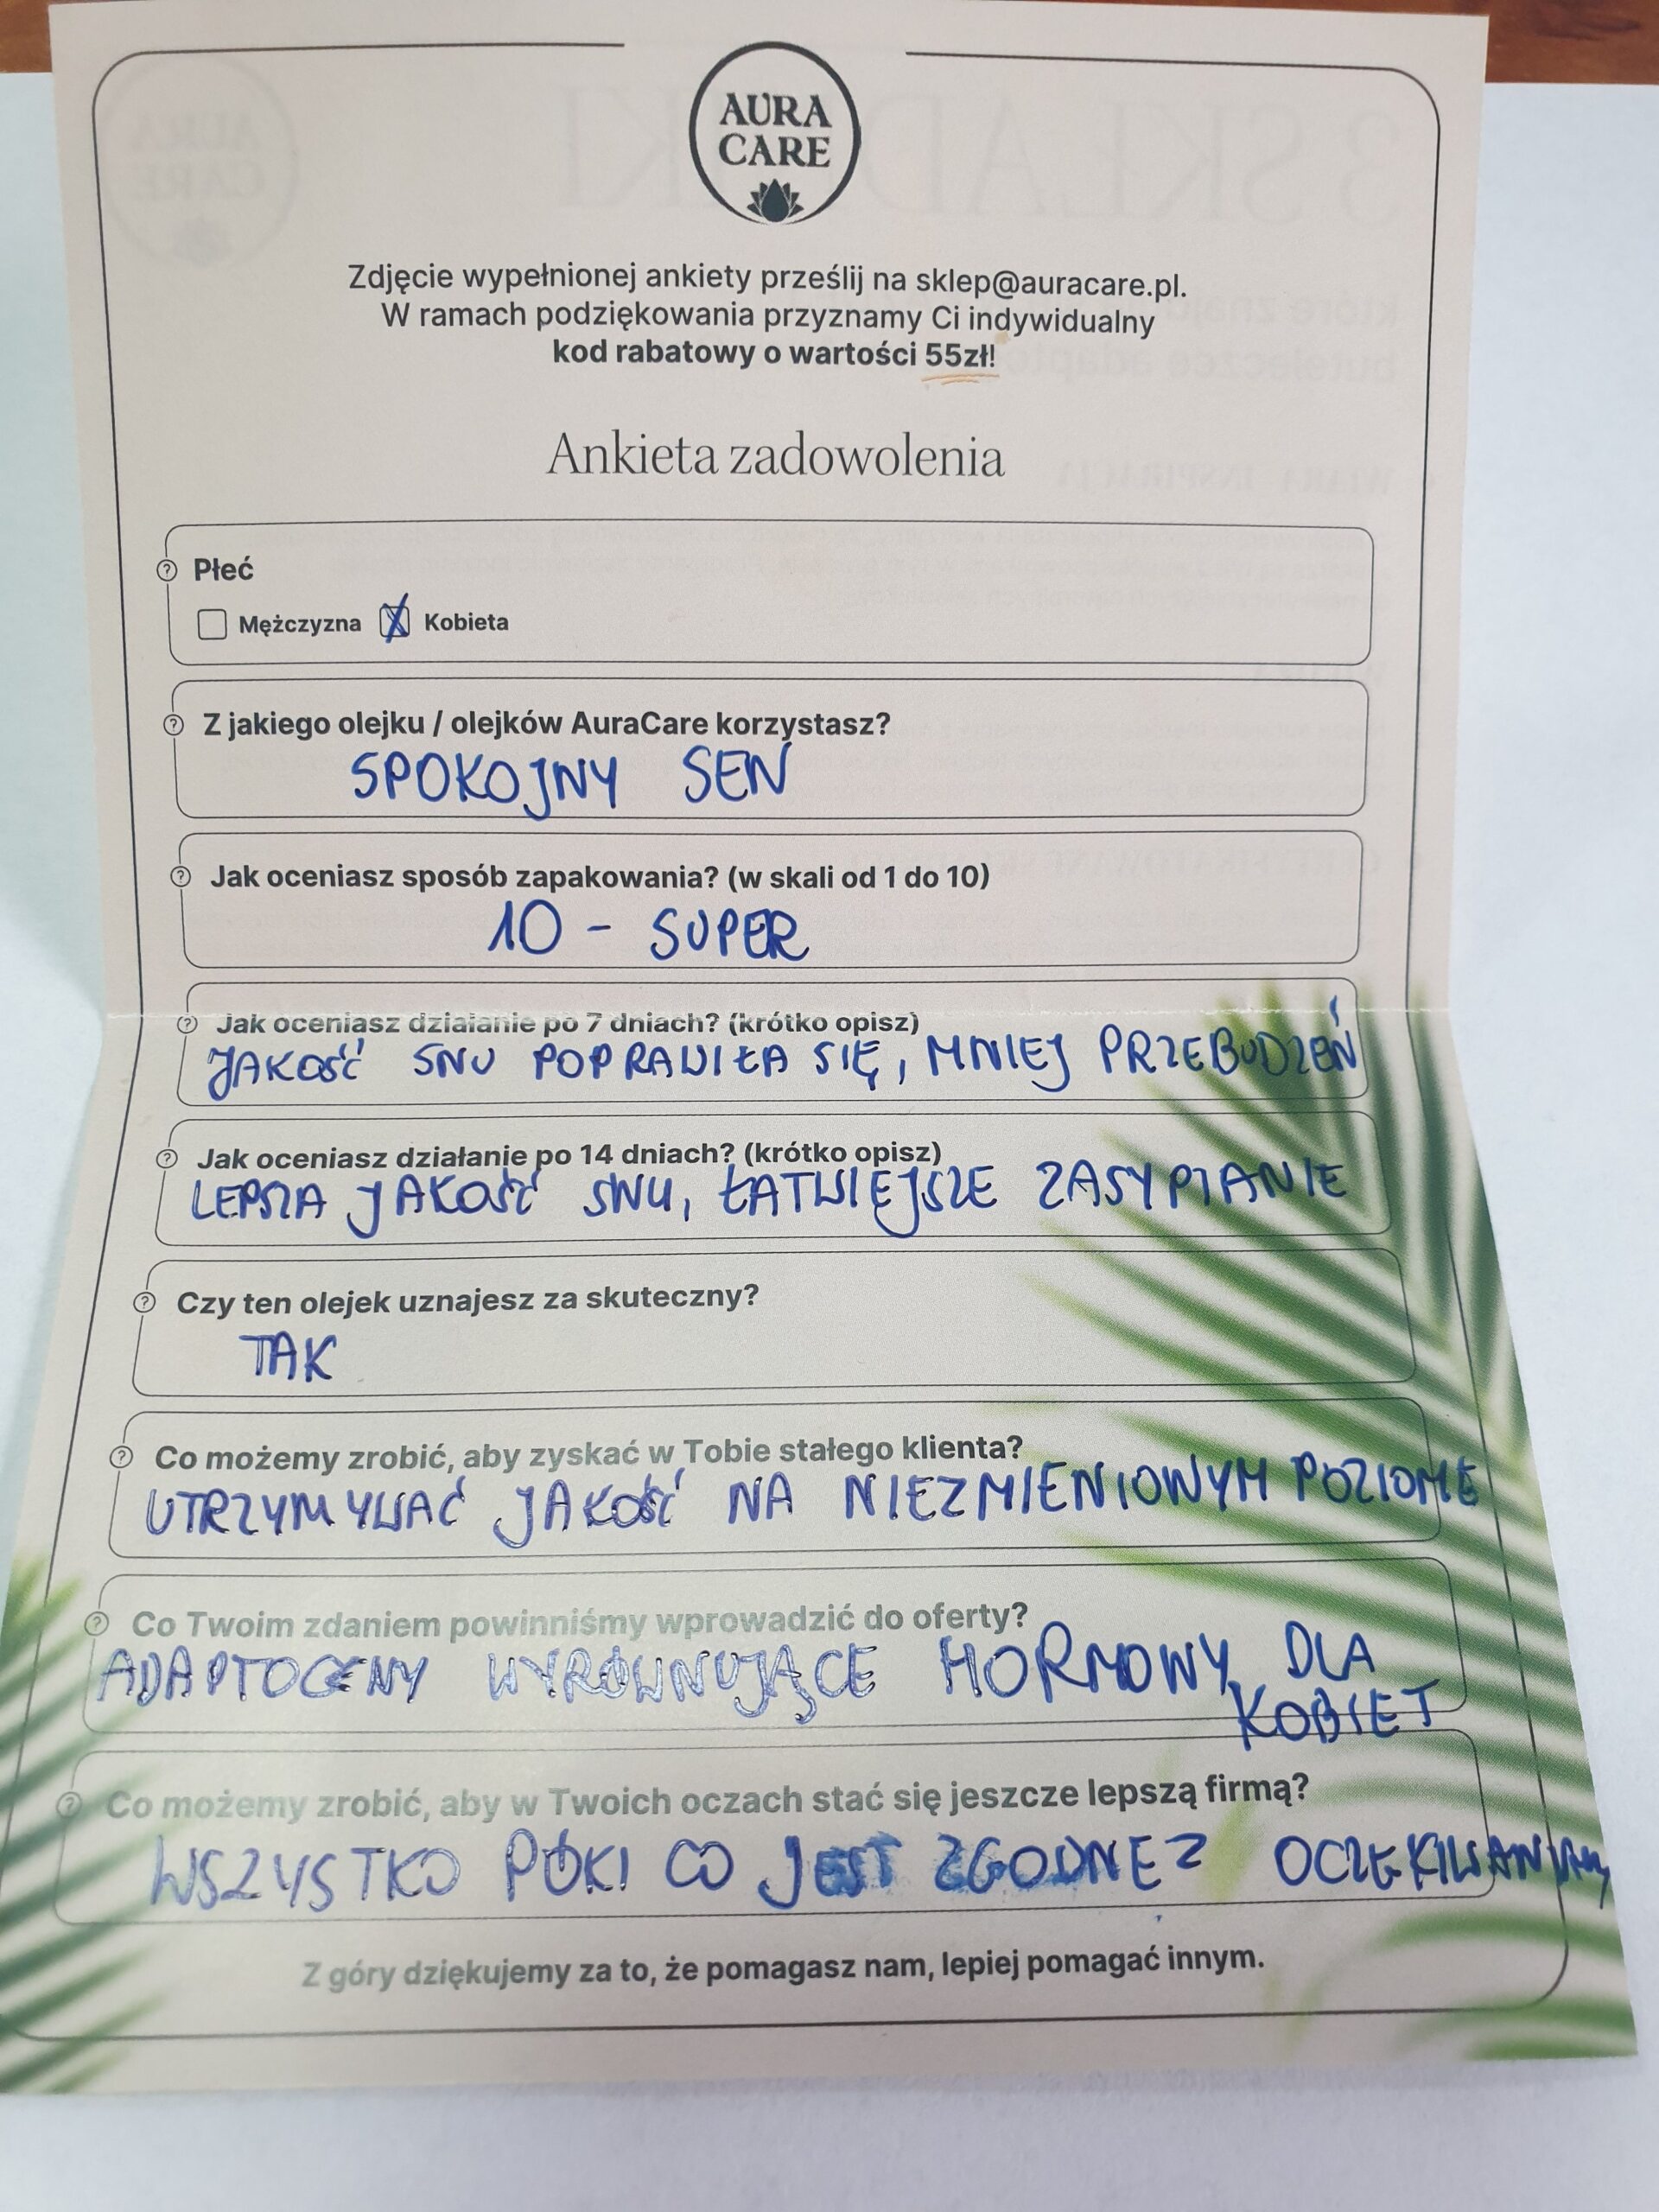 AURA
CARE
Zdjęcie wypełnionej ankiety prześlij na sklep@auracare.pl.
W ramach podziękowania przyznamy Ci indywidualny
kod rabatowy o wartości 55zł!
Ankieta zadowolenia
Płeć
Mężczyzna X Kobieta
Z jakiego olejku / olejków AuraCare korzystasz?
SPOKOJNY SEN
Jak oceniasz sposób zapakowania? (w skali od 1 do 10)
10 - SUPER
Jak oceniasz działanie po 7 dniach? (krótko opisz)
JAKOŚĆ SNU POPRAWIŁA SIĘ, MNIEJ PRZEBUDZEŃ
Jak oceniasz działanie po 14 dniach? (krótko opisz)
LEPSZA JAKOŚĆ SNU, ŁATWIEJSZE ZASYPIANIE
Czy ten olejek uznajesz za skuteczny?
TAK
Co możemy zrobić, aby zyskać w Tobie stałego klienta?
UTRZYMYWAĆ JAKOŚĆ NA NIEZMIENIOWYM POZIOMIE
Co Twoim zdaniem powinniśmy wprowadzić do oferty?
ADAPTOGENY WYRÓWNUJĄCE HORMONY DLA
KOBIET
Co możemy zrobić, aby w Twoich oczach stać się jeszcze lepszą firmą?
WSZYSTKO PÓKI CO JEST ZGODNE Z OCZEKIWANIAMI
Z góry dziękujemy za to, że pomagasz nam, lepiej pomagać innym.